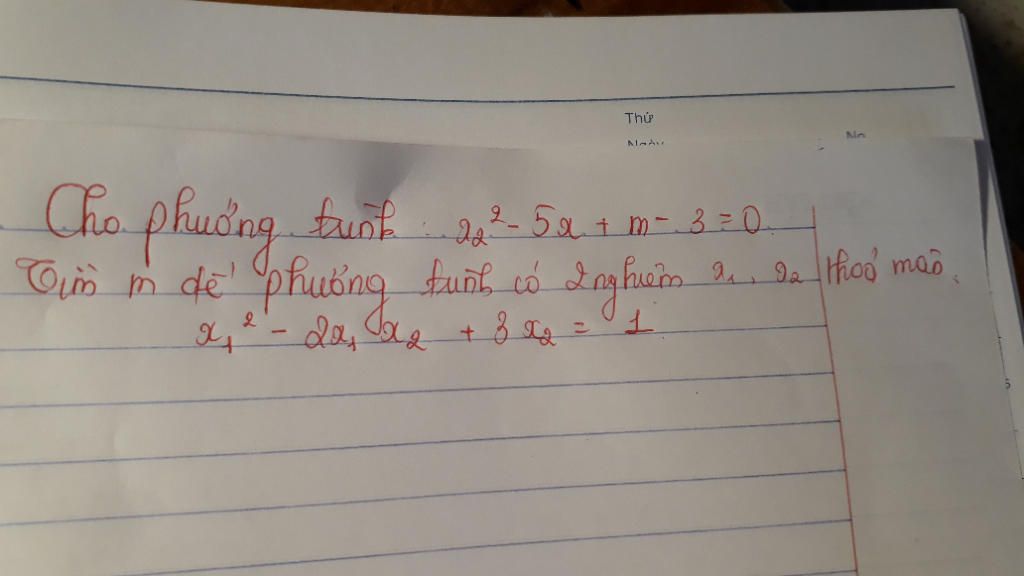 Thứ
No
Cho phương trình : x² - 5x + m - 3 = 0
Tìm m để phương trình có 2 nghiệm x₁, x₂ thoả mãn.
x₁² - 2x₁ x₂ + 3x₂ = 1